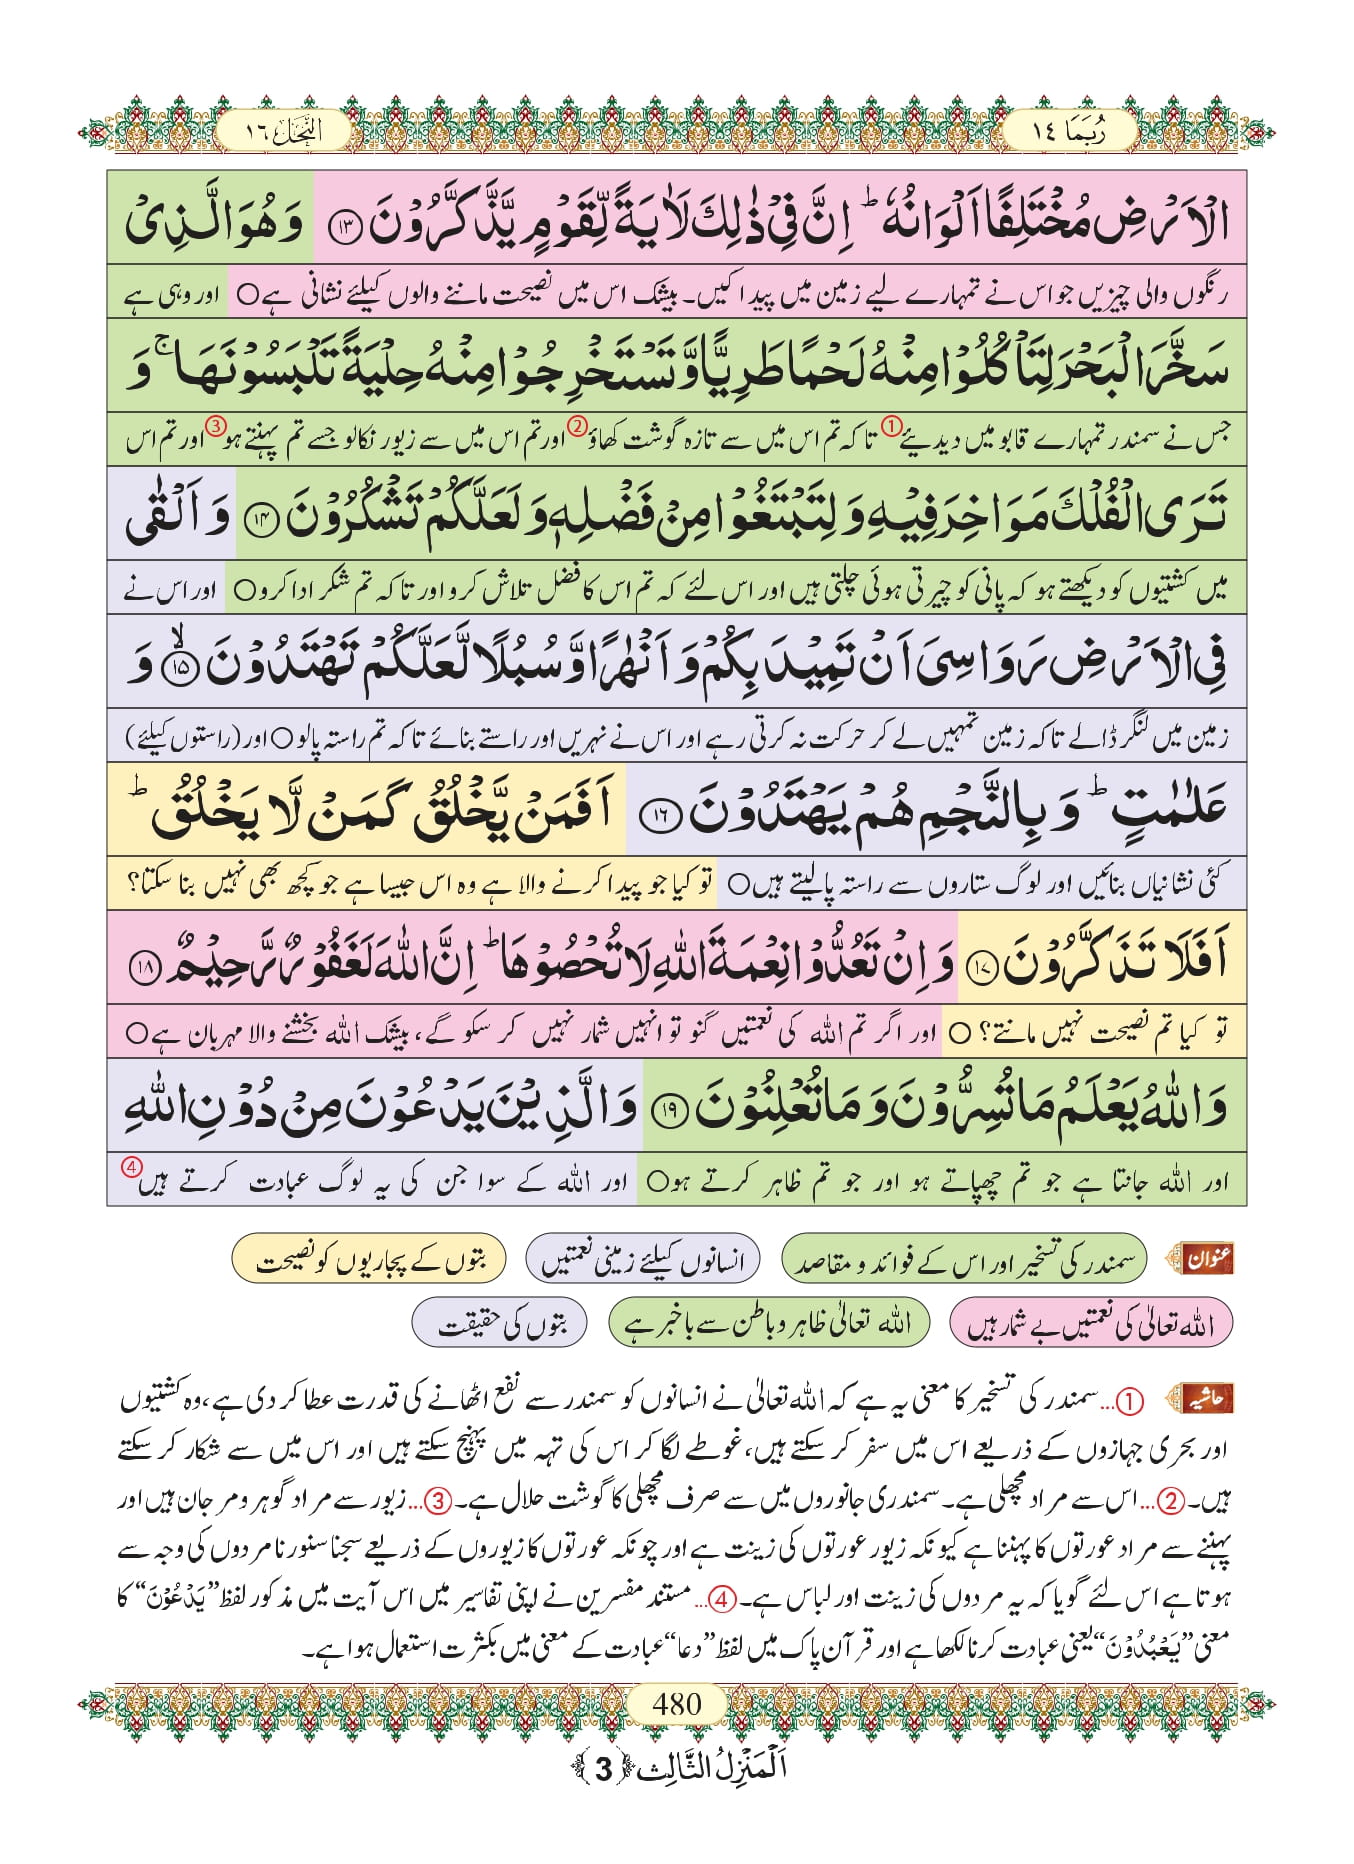 رُبَمَا ١٤
النَّحْل ١٦
الْاَرْضِ مُخْتَلِفًا اَلْوَانُهٗ ؕ اِنَّ فِیْ ذٰلِكَ لَاٰیَةً لِّقَوْمٍ یَّذَّكَّرُوْنَ ﴿۱۳﴾ وَ هُوَ الَّذِیْ
رنگوں والی چیزیں جو اس نے تمہارے لیے زمین میں پیدا کیں۔ بیشک اس میں نصیحت ماننے والوں کیلئے نشانی ہے○ اور وہی ہے
سَخَّرَ الْبَحْرَ لِتَاْكُلُوْا مِنْهُ لَحْمًا طَرِیًّا وَّ تَسْتَخْرِجُوْا مِنْهُ حِلْیَةً تَلْبَسُوْنَهَا ۚ وَ
جس نے سمندر تمہارے قابو میں دیدیئے① تاکہ تم اس میں سے تازہ گوشت کھاؤ② اور تم اس میں سے زیور نکالو جسے تم پہنتے ہو③ اور تم اس
تَرَى الْفُلْكَ مَوَاخِرَ فِیْهِ وَ لِتَبْتَغُوْا مِنْ فَضْلِهٖ وَ لَعَلَّكُمْ تَشْكُرُوْنَ ﴿۱۴﴾ وَ اَلْقٰى
میں کشتیوں کو دیکھتے ہو کہ پانی کو چیرتی ہوئی چلتی ہیں اور اس لئے کہ تم اس کا فضل تلاش کرو اور تاکہ تم شکر ادا کرو○ اور اس نے
فِی الْاَرْضِ رَوَاسِیَ اَنْ تَمِیْدَ بِكُمْ وَ اَنْهٰرًا وَّ سُبُلًا لَّعَلَّكُمْ تَهْتَدُوْنَ ﴿ۙ۱۵﴾ وَ
زمین میں لنگر ڈالے تاکہ زمین تمہیں لے کر حرکت نہ کرتی رہے اور اس نے نہریں اور راستے بنائے تاکہ تم راستہ پالو○ اور (راستوں کیلئے)
عَلٰمٰتٍ ؕ وَ بِالنَّجْمِ هُمْ یَهْتَدُوْنَ ﴿۱۶﴾ اَفَمَنْ یَّخْلُقُ كَمَنْ لَّا یَخْلُقُ ؕ
کئی نشانیاں بنائیں اور لوگ ستاروں سے راستہ پالیتے ہیں○ تو کیا جو پیدا کرنے والا ہے وہ اس جیسا ہے جو کچھ بھی نہیں بنا سکتا؟
اَفَلَا تَذَكَّرُوْنَ ﴿۱۷﴾ وَ اِنْ تَعُدُّوْا نِعْمَةَ اللّٰهِ لَا تُحْصُوْهَا ؕ اِنَّ اللّٰهَ لَغَفُوْرٌ رَّحِیْمٌ ﴿۱۸﴾
تو کیا تم نصیحت نہیں مانتے؟○ اور اگر تم اللہ کی نعمتیں گنو تو انہیں شمار نہیں کر سکو گے، بیشک اللہ بخشنے والا مہربان ہے○
وَ اللّٰهُ یَعْلَمُ مَا تُسِرُّوْنَ وَ مَا تُعْلِنُوْنَ ﴿۱۹﴾ وَ الَّذِیْنَ یَدْعُوْنَ مِنْ دُوْنِ اللّٰهِ
اور اللہ جانتا ہے جو تم چھپاتے ہو اور جو تم ظاہر کرتے ہو○ اور اللہ کے سوا جن کی یہ لوگ عبادت کرتے ہیں④
عنوان سمندر کی تسخیر اور اس کے فوائد و مقاصد انسانوں کیلئے زمینی نعمتیں بتوں کے پجاریوں کو نصیحت
اللہ تعالیٰ کی نعمتیں بے شمار ہیں اللہ تعالیٰ ظاہر و باطن سے باخبر ہے بتوں کی حقیقت
حاشیہ ①...سمندر کی تسخیر کا معنی یہ ہے کہ اللہ تعالیٰ نے انسانوں کو سمندر سے نفع اٹھانے کی قدرت عطا کر دی ہے، وہ کشتیوں
اور بحری جہازوں کے ذریعے اس میں سفر کر سکتے ہیں، غوطے لگا کر اس کی تہہ میں پہنچ سکتے ہیں اور اس میں سے شکار کر سکتے
ہیں۔②...اس سے مراد مچھلی ہے۔ سمندری جانوروں میں سے صرف مچھلی کا گوشت حلال ہے۔③...زیور سے مراد گوہر و مرجان ہیں اور
پہننے سے مراد عورتوں کا پہننا ہے کیونکہ زیور عورتوں کی زینت ہے اور چونکہ عورتوں کا زیوروں کے ذریعے سجنا سنورنا مردوں کی وجہ سے
ہوتا ہے اس لئے گویا کہ یہ مردوں کی زینت اور لباس ہے۔④...مستند مفسرین نے اپنی تفاسیر میں اس آیت میں مذکور لفظ ”یَدْعُوْنَ“ کا
معنی ”یَعْبُدُوْنَ“ یعنی عبادت کرنا لکھا ہے اور قرآن پاک میں لفظ ”دعا“ عبادت کے معنی میں بکثرت استعمال ہوا ہے۔
480
اَلْمَنْزِلُ الثَّالِث ﴿3﴾